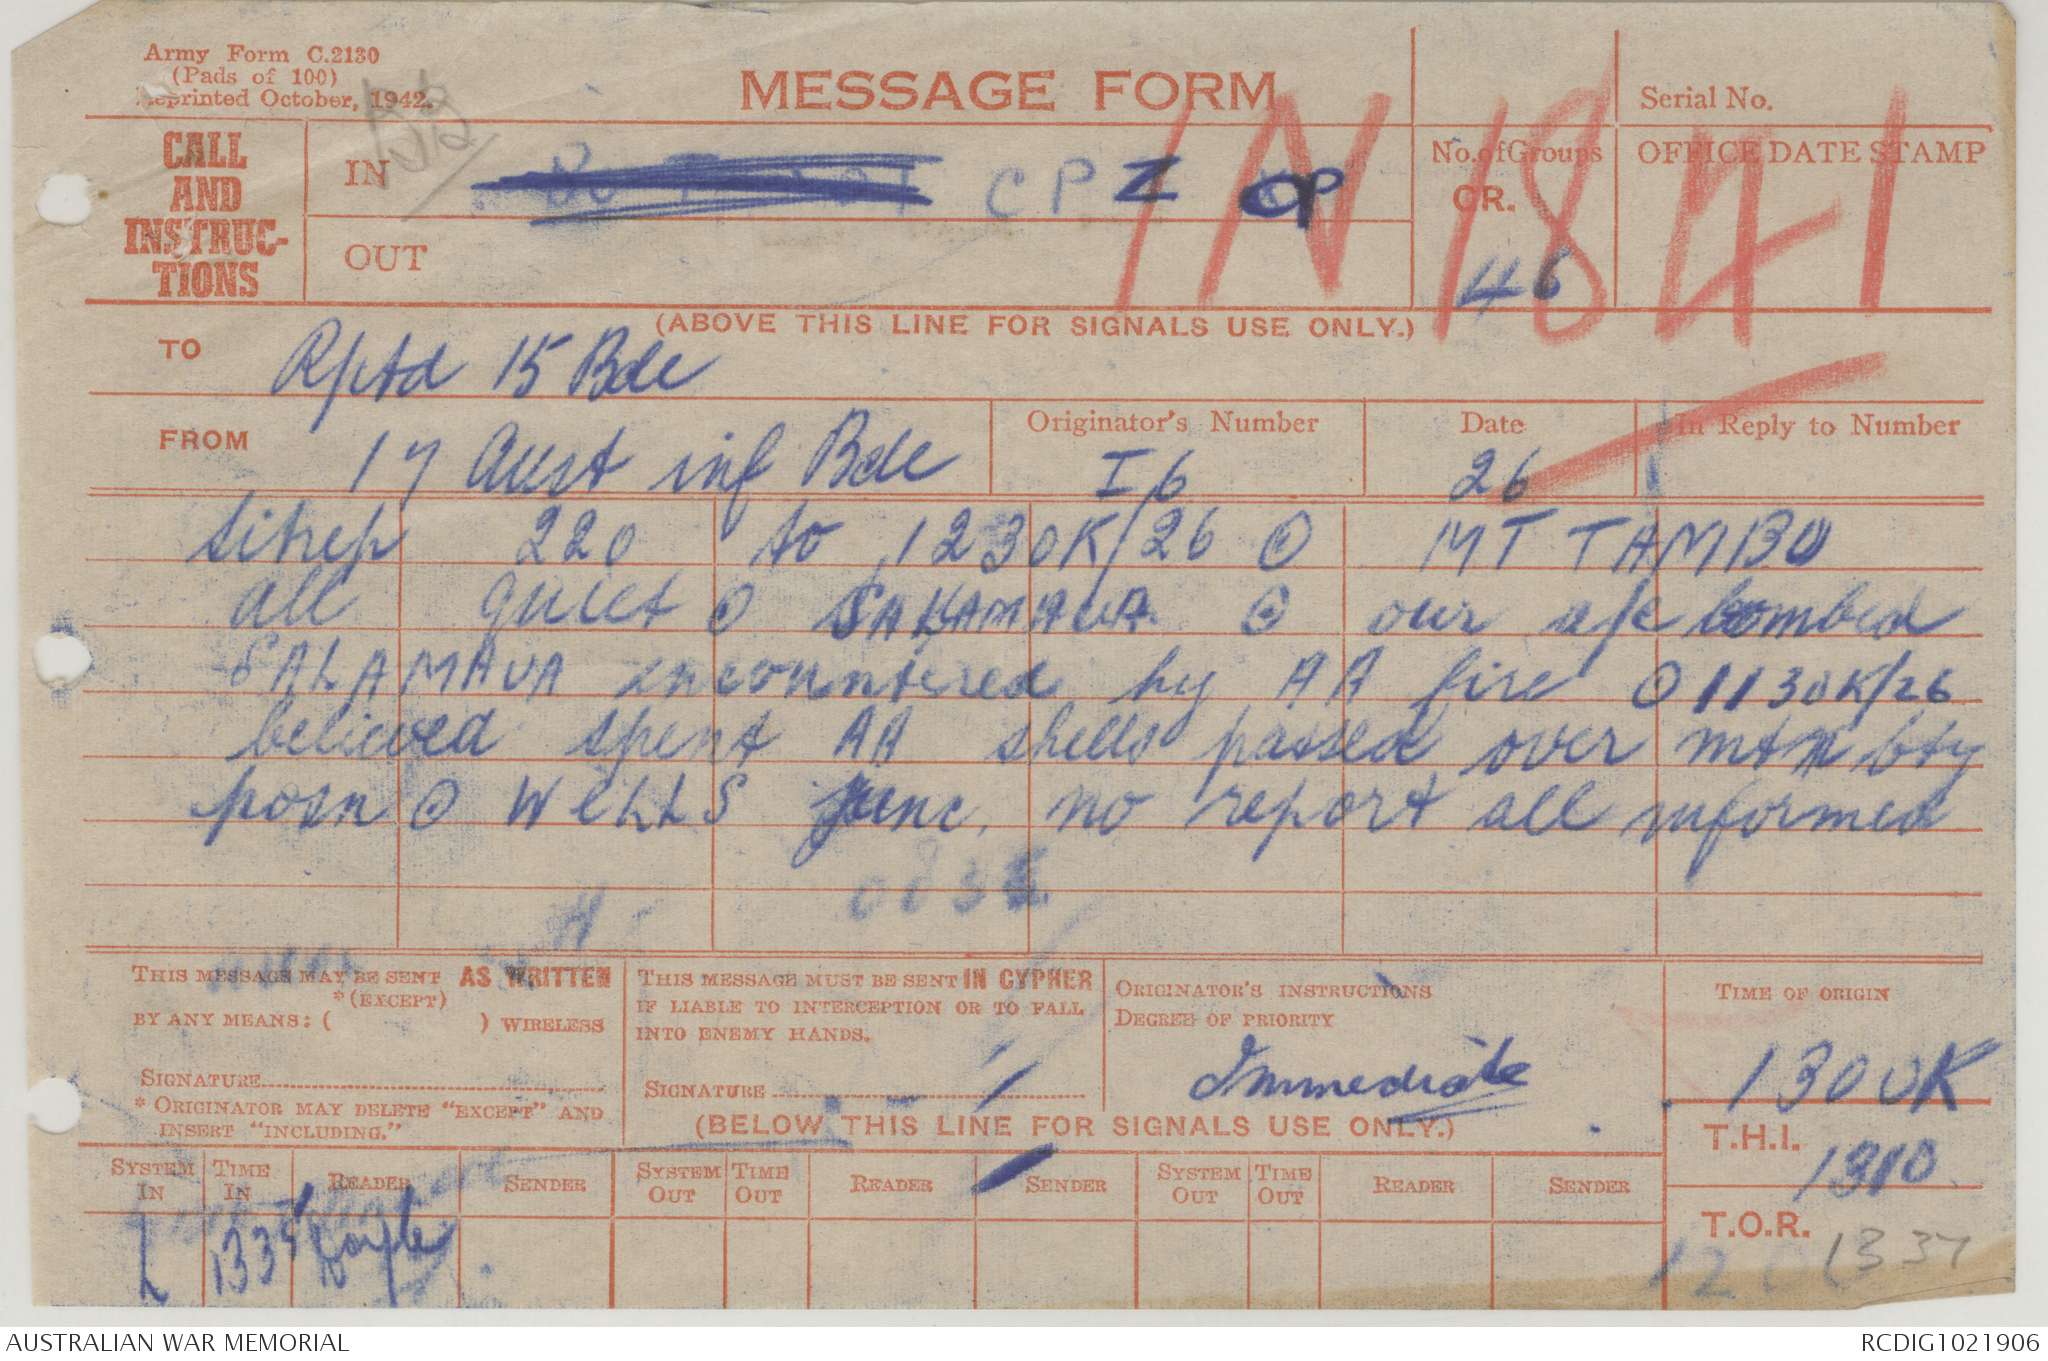 Army Form C.2130
(Pads of 100)
Reprinted October, 1942.
MESSAGE FORM
Serial No.
CALL AND INSTRUC-TIONS
IN
CPZ OP
IN 1841
No. of Groups
GR.
46
OFFICE DATE STAMP
OUT
(ABOVE THIS LINE FOR SIGNALS USE ONLY.)
TO
Rptd 15 Bde
FROM
17 Aust inf Bde
Originator's Number
I/6
Date
26
In Reply to Number
sitrep 220 to 1230K/26 ⊙ MT TAMBU
all quiet ⊙ SALAMAUA ⊙ our a/c bombed
SALAMAUA encountered by AA fire ⊙ 1130K/26
believed spent AA shells passed over mtn bty
posn ⊙ WELLS junc. no report all informed
THIS MESSAGE MAY BE SENT AS WRITTEN
*(EXCEPT)
BY ANY MEANS: ( ) WIRELESS
SIGNATURE
* ORIGINATOR MAY DELETE "EXCEPT" AND
INSERT "INCLUDING."
THIS MESSAGE MUST BE SENT IN CYPHER
IF LIABLE TO INTERCEPTION OR TO FALL
INTO ENEMY HANDS.
SIGNATURE
ORIGINATOR'S INSTRUCTIONS
DEGREE OF PRIORITY
Immediate
TIME OF ORIGIN
1300K
(BELOW THIS LINE FOR SIGNALS USE ONLY.)
T.H.I.
1310
T.O.R.
1337
SYSTEM IN
TIME IN
READER
SENDER
SYSTEM OUT
TIME OUT
READER
SENDER
SYSTEM OUT
TIME OUT
READER
SENDER
1335 Doyle
AUSTRALIAN WAR MEMORIAL
RCDIG1021906